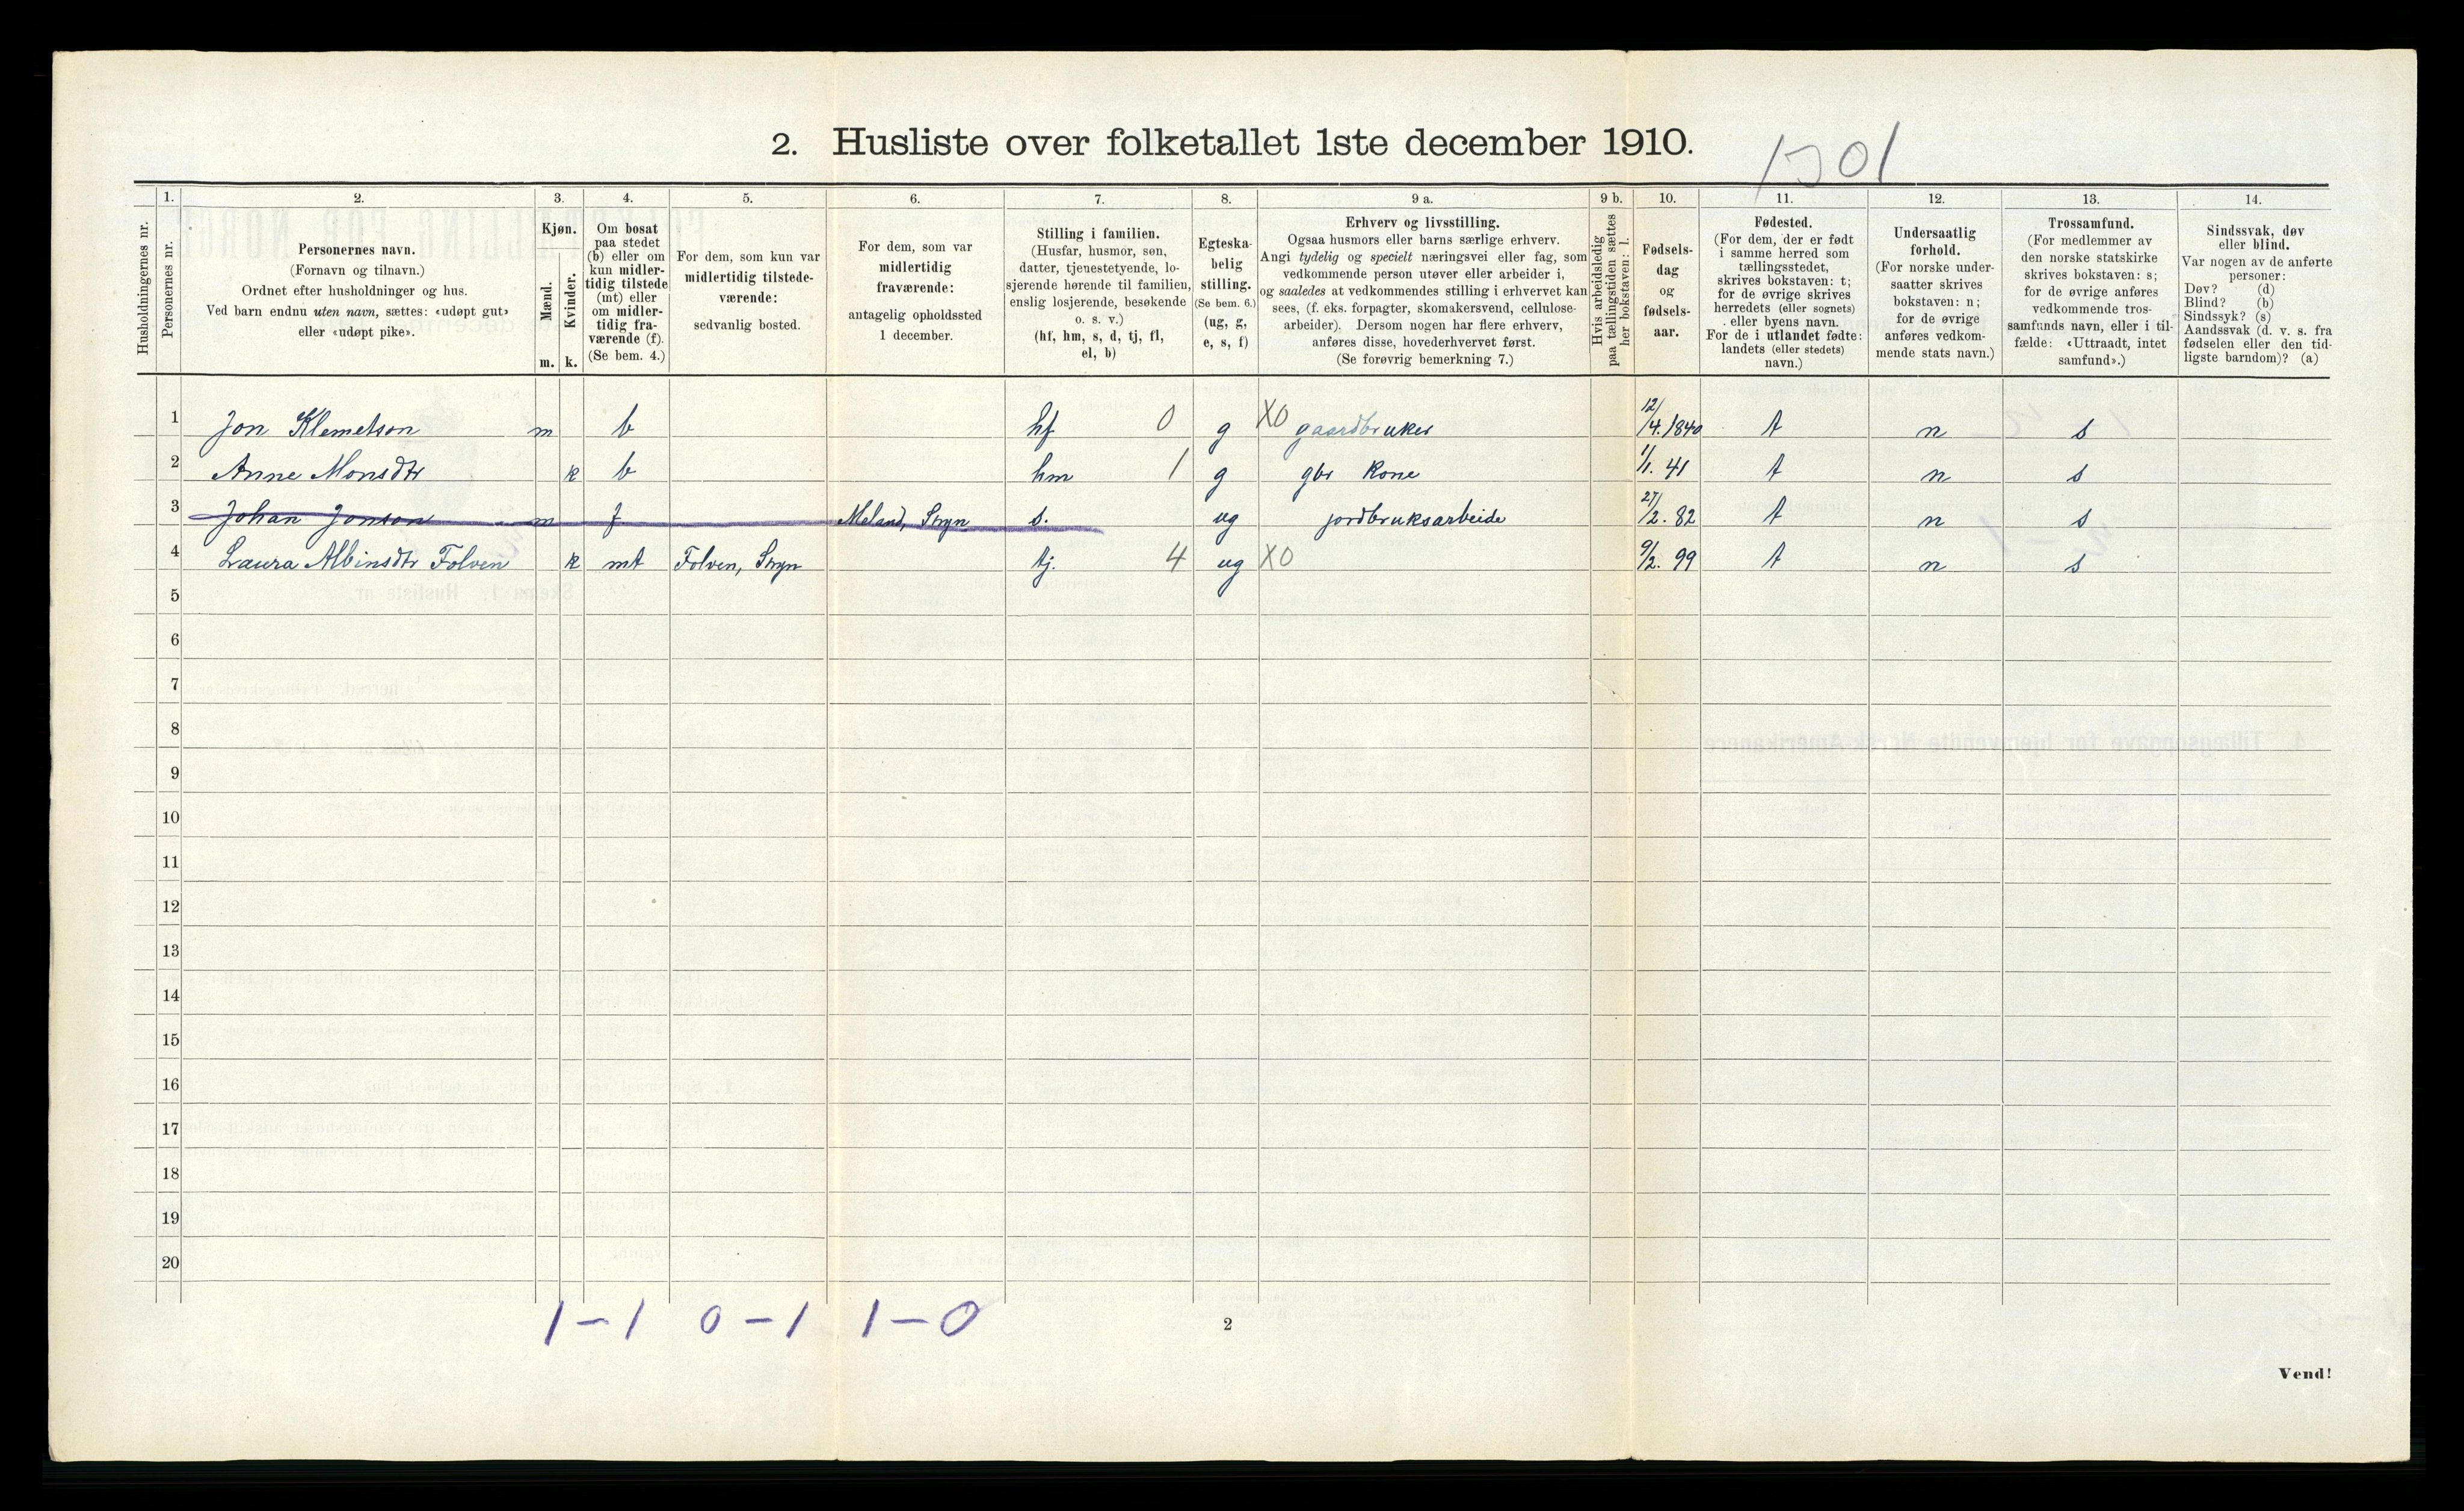 2. Husliste over folketallet 1ste december 1910.
1301
1. 2. 3. 4. 5. 6. 7. 8. 9 a. 9 b. 10. 11. 12. 13. 14.
Husholdningernes nr.
Personernes nr.
Personernes navn.
(Fornavn og tilnavn.)
Ordnet efter husholdninger og hus.
Ved barn endnu uten navn, sættes: «udøpt gut»
eller «udøpt pike».
Kjøn.
Mænd.
Kvinder.
m. k.
Om bosat
paa stedet
(b) eller om
kun midler-
tidig tilstede
(mt) eller
om midler-
tidig fra-
værende (f).
(Se bem. 4.)
For dem, som kun var
midlertidig tilstede-
værende:
sedvanlig bosted.
For dem, som var
midlertidig
fraværende:
antagelig opholdssted
1 december.
Stilling i familien.
(Husfar, husmor, søn,
datter, tjenestetyende, lo-
sjerende hørende til familien,
enslig losjerende, besøkende
o. s. v.)
(hf, hm, s, d, tj, fl,
el, b)
Egteska-
belig
stilling.
(Se bem. 6.)
(ug, g,
e, s, f)
Erhverv og livsstilling.
Ogsaa husmors eller barns særlige erhverv.
Angi tydelig og specielt næringsvei eller fag, som
vedkommende person utøver eller arbeider i,
og saaledes at vedkommendes stilling i erhvervet kan
sees, (f. eks. forpagter, skomakersvend, cellulose-
arbeider). Dersom nogen har flere erhverv,
anføres disse, hovederhvervet først.
(Se forøvrig bemerkning 7.)
Hvis arbeidsledig
paa tællingstiden sættes
her bokstaven: l.
Fødsels-
dag
og
fødsels-
aar.
Fødested.
(For dem, der er født
i samme herred som
tællingsstedet,
skrives bokstaven: t;
for de øvrige skrives
herredets (eller sognets)
eller byens navn.
For de i utlandet fødte:
landets (eller stedets)
navn.)
Undersaatlig
forhold.
(For norske under-
saatter skrives
bokstaven: n;
for de øvrige
anføres vedkom-
mende stats navn.)
Trossamfund.
(For medlemmer av
den norske statskirke
skrives bokstaven: s;
for de øvrige anføres
vedkommende tros-
samfunds navn, eller i til-
fælde: «Uttraadt, intet
samfund».)
Sindssvak, døv
eller blind.
Var nogen av de anførte
personer:
Døv? (d)
Blind? (b)
Sindssyk? (s)
Aandssvak (d. v. s. fra
fødselen eller den tid-
ligste barndom)? (a)
1 Jon Klemetson m b hf 0 g X0 gaardbruker 12/4. 1840 t n s
2 Anne Monsdtr k b hm 1 g gbr kone 1/1. 41 t n s
3 Johan Jonson m f Meland, Stryn s. ug jordbruksarbeide 27/2. 82 t n s
4 Laura Albinsdtr Folven k mt Folven, Stryn tj. 4 ug X0 9/2. 99 t n s
5
6
7
8
9
10
11
12
13
14
15
16
17
18
19
20
1-1 0-1 1-0
2
Vend!